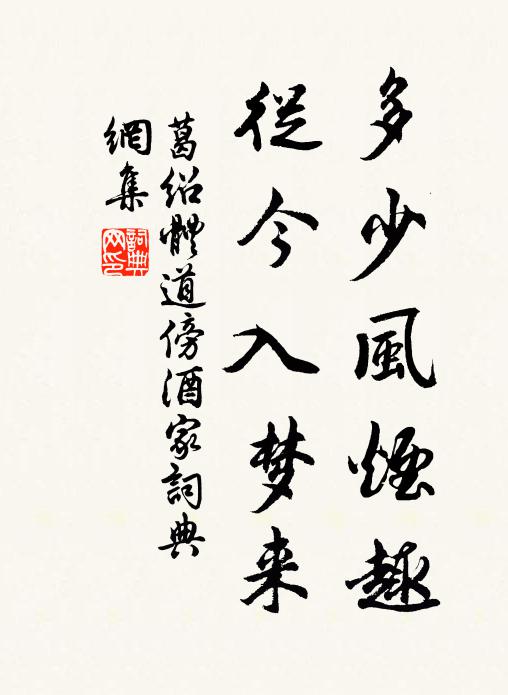 多少風煙趣
從今入梦来
葛绍體道傍酒家詞典
網集
詞典
网印